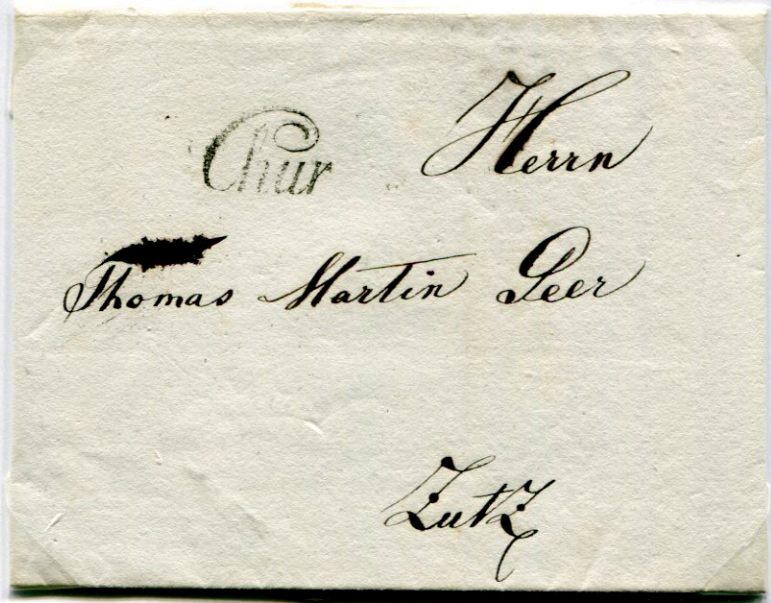 Chur
Herrn
Thomas Martin Peer
Zutz